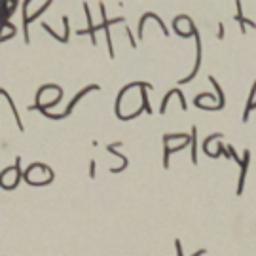 Putting, 
er and
do is play